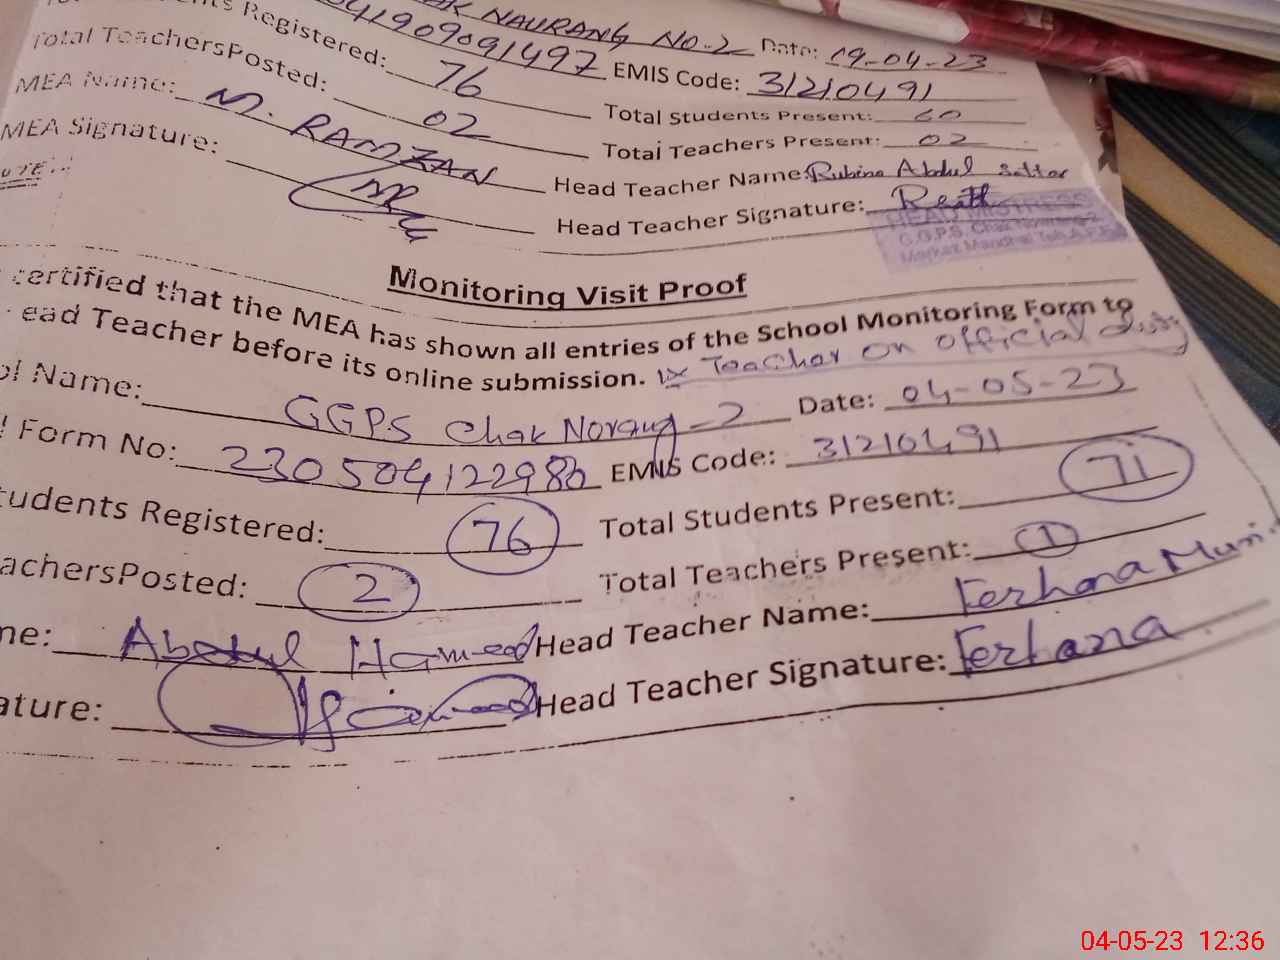 NAURANG NO-2 Date: 19-04-23
EMIS Code: 31210491
Registered: 76 Total Students Present: 60
Total TeachersPosted: 02 Total Teachers Present: 02
MEA Name: M. RAMZAN Head Teacher Name: Rubina Abdul Sattar
MEA Signature: Head Teacher Signature:
HEAD MISTRESS
Monitoring Visit Proof
certified that the MEA has shown all entries of the School Monitoring Form to
ead Teacher before its online submission. 1x Teacher on official duty
ol Name: GGPS Chak Norang-2 Date: 04-05-23
Form No: 230504122980 EMIS Code: 31210491
tudents Registered: 76 Total Students Present: 71
achersPosted: 2 Total Teachers Present: 1
me: Abdul Hameed Head Teacher Name: Ferhana Muni
ature: Hameed Head Teacher Signature: Ferhana
04-05-23 12:36